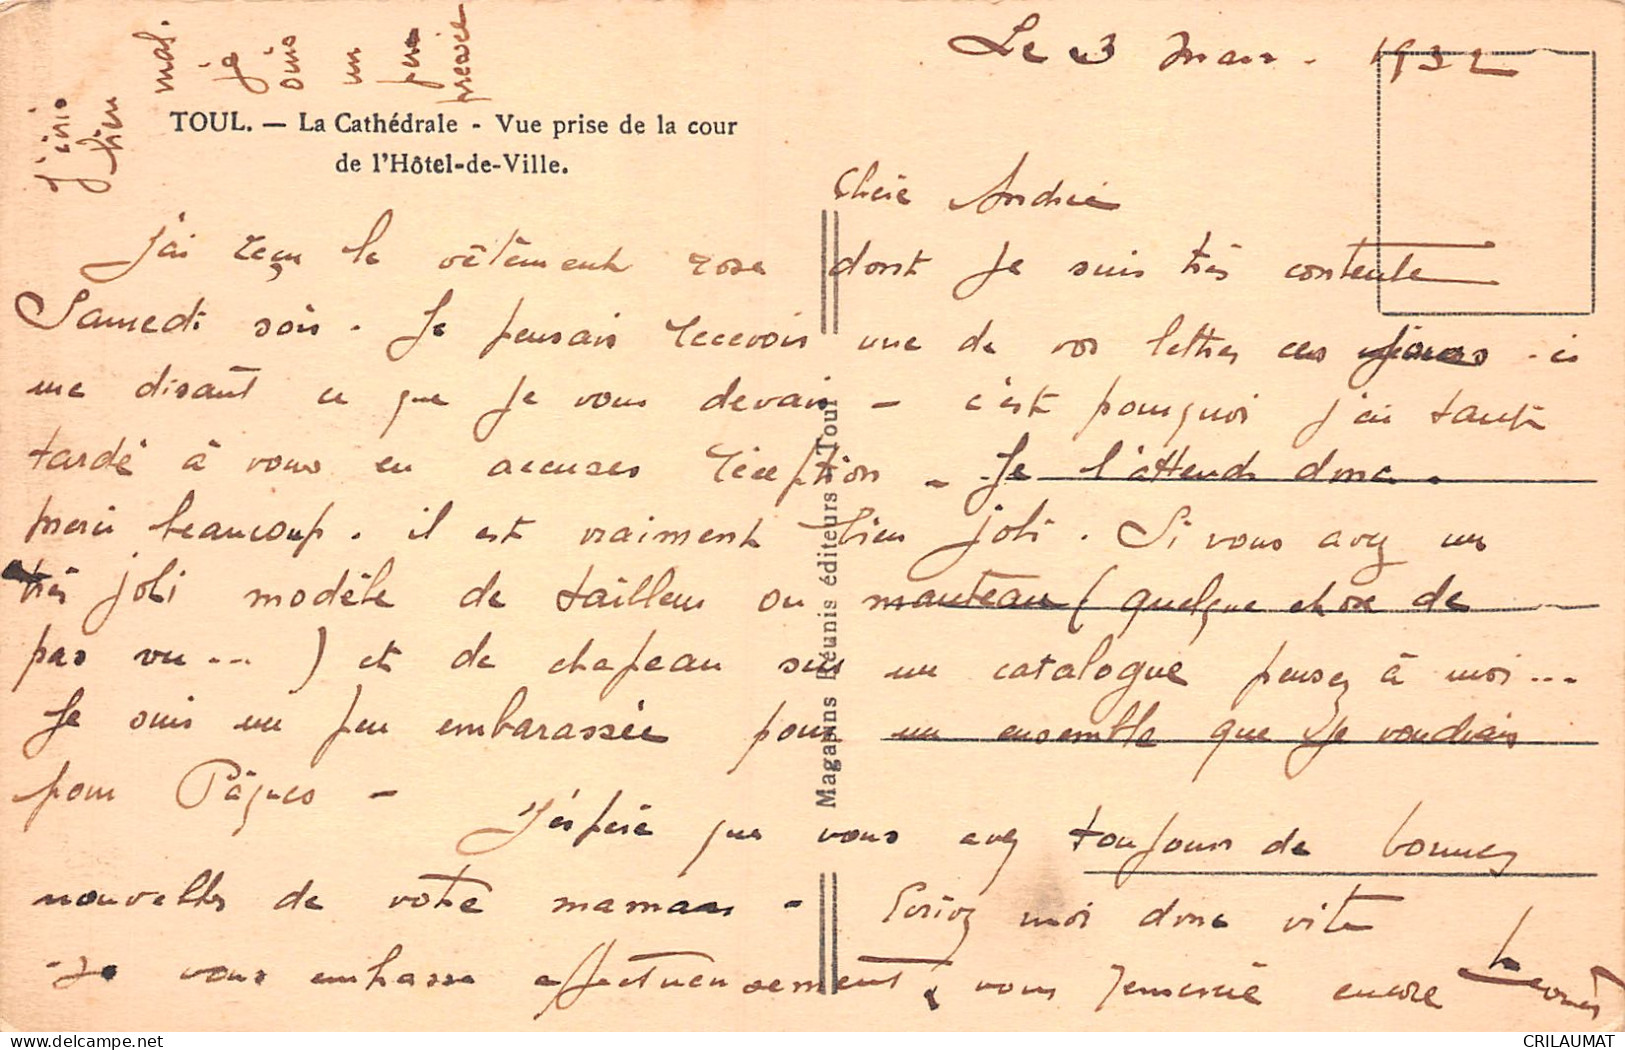 Le 3 Mars. 1932
j'écris
bien
mal.
je
suis
un
peu
pressée
TOUL. — La Cathédrale - Vue prise de la cour
de l'Hôtel-de-Ville.
Chère Andrée
J'ai reçu le vêtement rose dont je suis très contente
Samedi soir. Je pensais recevoir une de vos lettres ces jours-ci
me disant ce que je vous devais - c'est pourquoi j'ai tant
tardé à vous en accuser réception - Je l'attends donc.
Merci beaucoup. il est vraiment bien joli. Si vous avez un
très joli modèle de tailleur ou manteau (quelque chose de
pas vu...) et de chapeau sur un catalogue pensez à moi...
Je suis un peu embarassée pour un ensemble que je voudrais
pour Pâques -
J'espère que vous avez toujours de bonnes
nouvelles de votre maman - Ecrivez moi donc vite
Je vous embrasse affectueusement, vous remercie encore
Magasins Réunis éditeurs Toul
CRILAUMAT